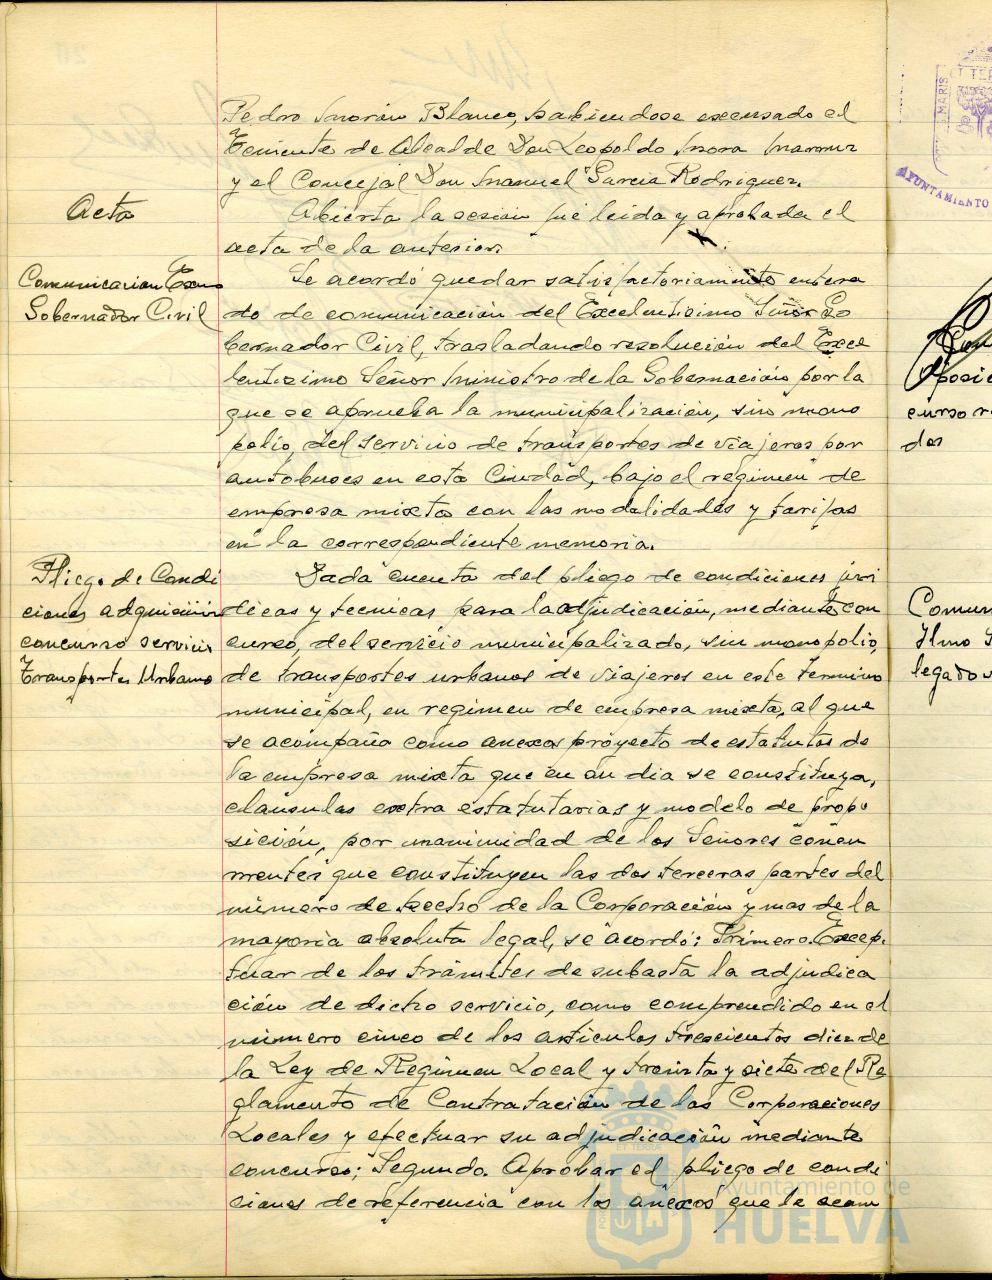 Pedro Morán Blanco, habiendose excusado el
Teniente de Alcalde Don Leopoldo Mora
y el Concejal Don Manuel Garcia Rodriguez.
Acta
Abierta la sesion fué leida y aprobada el
acta de la anterior.
Comunicacion Excmo
Gobernador Civil
Se acordó quedar satisfactoriamente entera
do de comunicación del Excelentisimo Señor Go
bernador Civil, trasladando resolución del Exce
lentisimo Señor Ministro de la Gobernación por la
que se aprueba la municipalización, sin mono
polio, del servicio de transportes de viajeros por
autobuses en esta Ciudad, bajo el regimen de
empresa mixta con las modalidades y tarifas
en la correspondiente memoria.
Pliego de Condi
ciones adquisición
concurso servicio
Transportes Urbano
Dada cuenta del pliego de condiciones juri
dicas y tecnicas para la adjudicación, mediante con
curso, del servicio municipalizado, sin monopolio,
de transportes urbanos de viajeros en este termino
municipal, en regimen de empresa mixta, al que
se acompaña como anexos proyecto de estatutos de
la empresa mixta que en su dia se constituya,
clausulas extra estatutarias y modelo de propo
sición, por unanimidad de los Señores concu
rrentes que constituyen las dos terceras partes del
número de hecho de la Corporación y mas de la
mayoria absoluta legal, se acordó: Primero. Excep
tuar de los trámites de subasta la adjudica
ción de dicho servicio, como comprendido en el
número cinco de los articulos trescientos diez de
la Ley de Regimen Local y treinta y siete del Re
glamento de Contratación de las Corporaciones
Locales y efectuar su adjudicación mediante
concurso; Segundo. Aprobar el pliego de condi
ciones de referencia con los anexos que le acom
AYUNTAMIENTO
posic
curso r
dos
Comun
Ilmo S
legado
Ayuntamiento de
HUELVA